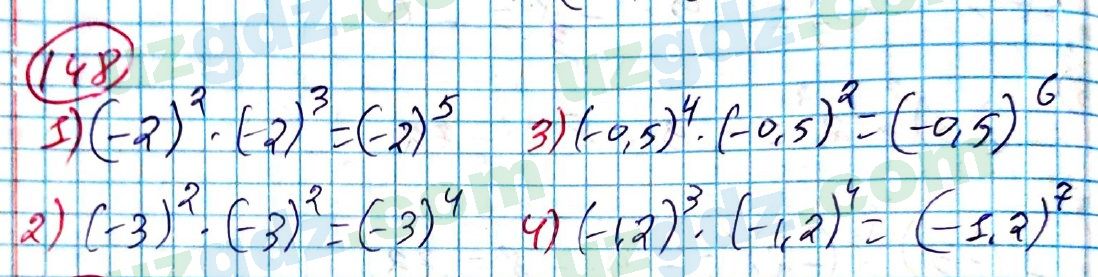 148
1) (-2)² · (-2)³ = (-2)⁵ 3) (-0,5)⁴ · (-0,5)² = (-0,5)⁶
2) (-3)² · (-3)² = (-3)⁴ 4) (-1,2)³ · (-1,2)⁴ = (-1,2)⁷